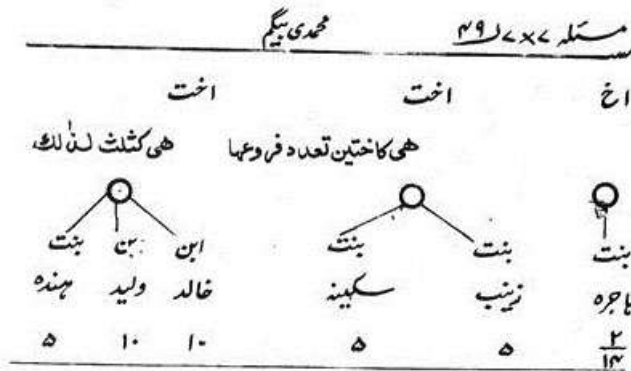 مسئلہ ۷×۷ ر۴۹ محمدی بیگم
اخ اخت اخت
ھی کاختین تعدد فروعہا ھی کثلث لذٰلك
بنت بنت بنت ابن ابن بنت
ہاجرہ زینب سکینہ خالد ولید ہندہ
۲ ۵ ۵ ۱۰ ۱۰ ۵
۱۴